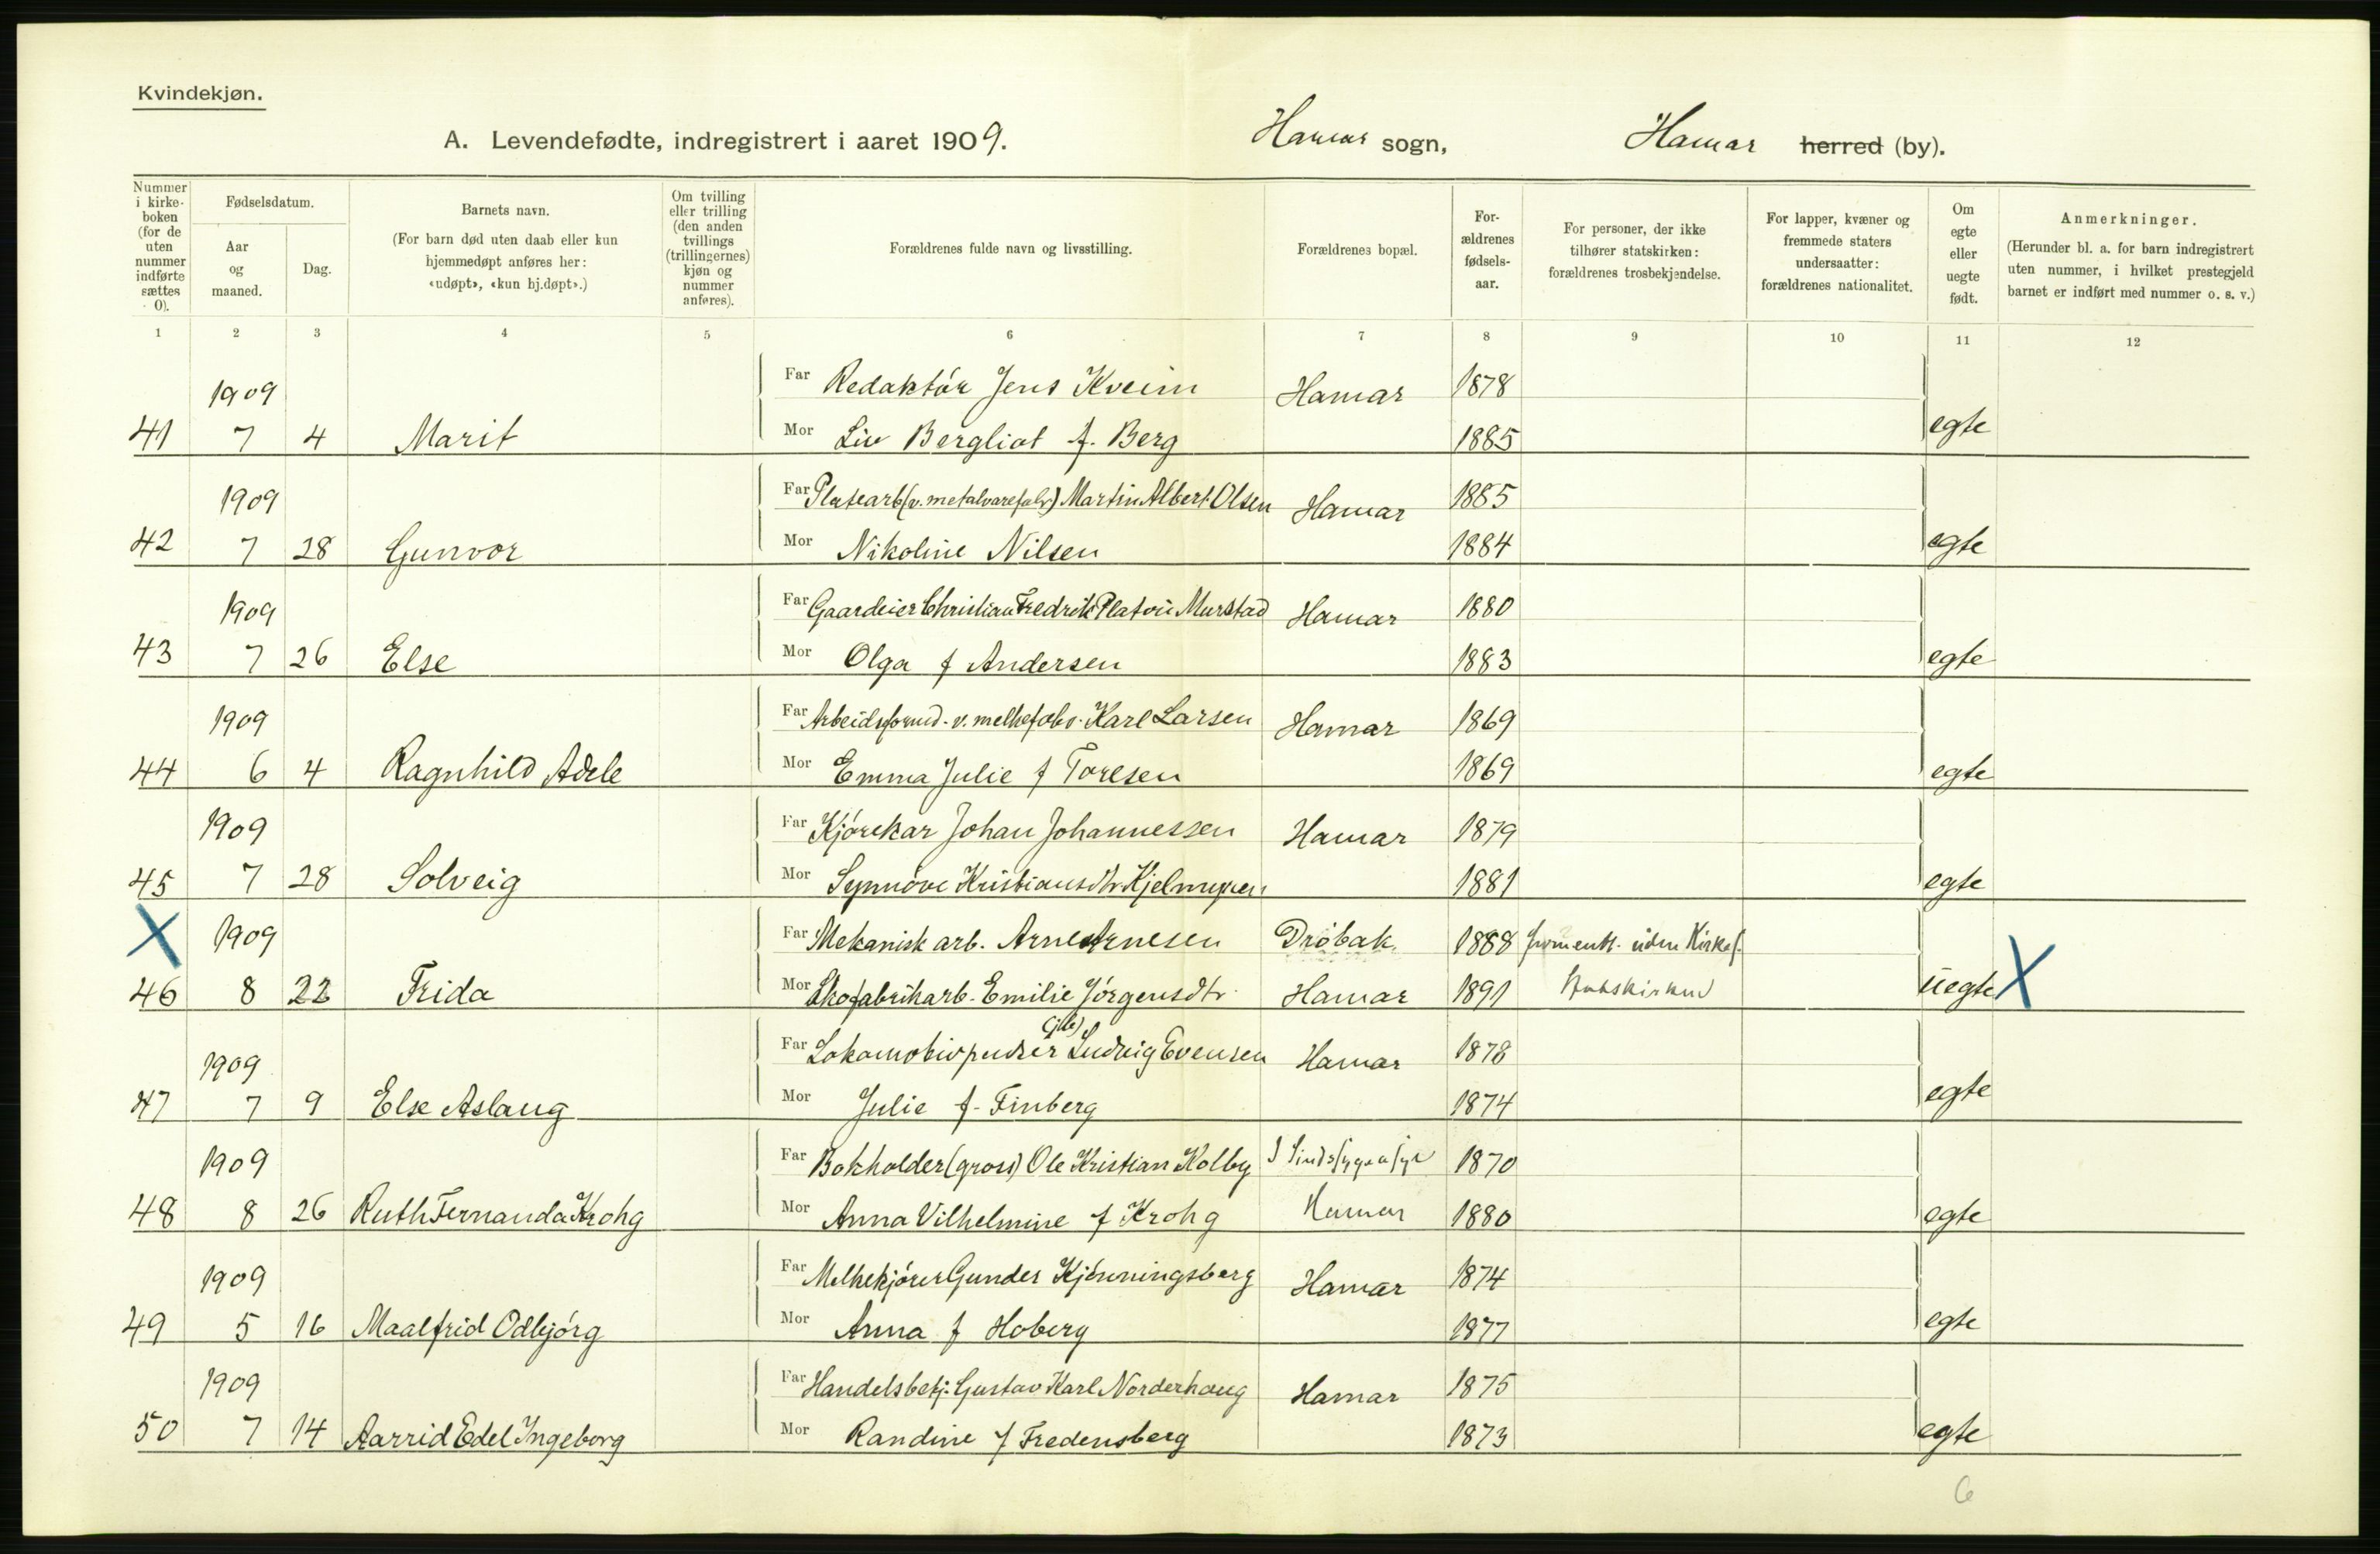 Kvindekjøn.
A. Levendefødte, indregistrert i aaret 1909. Hamar sogn, Hamar herred (by).
Nummer i kirkeboken (for de uten nummer indførte sættes 0).
Fødselsdatum.
Aar og maaned.
Dag.
Barnets navn.
(For barn død uten daab eller kun hjemmedøpt anføres her: «udøpt», «kun hj.døpt».)
Om tvilling eller trilling (den anden tvillings (trillingernes) kjøn og nummer anføres).
Forældrenes fulde navn og livsstilling.
Forældrenes bopæl.
Forældrenes fødselsaar.
For personer, der ikke tilhører statskirken: forældrenes trosbekjendelse.
For lapper, kvæner og fremmede staters undersaatter: forældrenes nationalitet.
Om egte eller uegte født.
Anmerkninger.
(Herunder bl. a. for barn indregistrert uten nummer, i hvilket prestegjeld barnet er indført med nummer o. s. v.)
1 2 3 4 5 6 7 8 9 10 11 12
1909 Far Redaktör Jens Kveim Hamar 1878
41 7 4 Marit Mor Liv Bergliot f. Berg 1885 egte
1909 Far Platearb (v. metalvarefabr) Martin Albert Olsen Hamar 1885
42 7 28 Gunvor Mor Nikoline Nilsen 1884 egte
1909 Far Gaardeier Christian Fredrik Platou Murstad Hamar 1880
43 7 26 Else Mor Olga f Andersen 1883 egte
1909 Far Arbeidsformd. v. melkefabr. Karl Larsen Hamar 1869
44 6 4 Ragnhild Adele Mor Emma Julie f Toresen 1869 egte
1909 Far Kjörekar Johan Johannessen Hamar 1879
45 7 28 Solveig Mor Synnöve Kristiansdtr Kjelmyren 1881 egte
X 1909 Far Mekanisk arb. Arne Arnesen Dröbak 1888 uden Kirkes.
46 8 22 Frida Mor Skofabrikarb. Emilie Jörgensdtr. Hamar 1891 Statskirken uegte X
1909 Far Lokomotivpudser Ludvig Evensen Hamar 1878
47 7 9 Else Aslaug Mor Julie f. Finberg 1874 egte
1909 Far Bokholder (gross) Ole Kristian Kolby 1870
48 8 26 Ruth Fernanda Krohg Mor Anna Vilhelmine f Krohg Hamar 1880 egte
1909 Far Melkekjörer Gunder Kjönningsberg Hamar 1874
49 5 16 Maalfrid Odbjörg Mor Anna f Hoberg 1877 egte
1909 Far Handelsbetj. Gustav Karl Norderhaug Hamar 1875
50 7 14 Aarrid Edel Ingeborg Mor Randine f Fredensberg 1873 egte
6